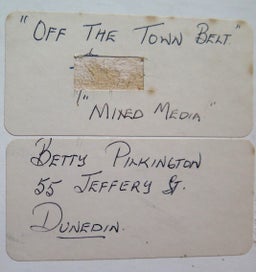 "OFF THE TOWN BELT."
"MIXED MEDIA"
BETTY PILKINGTON
55 JEFFERY ST.
DUNEDIN.